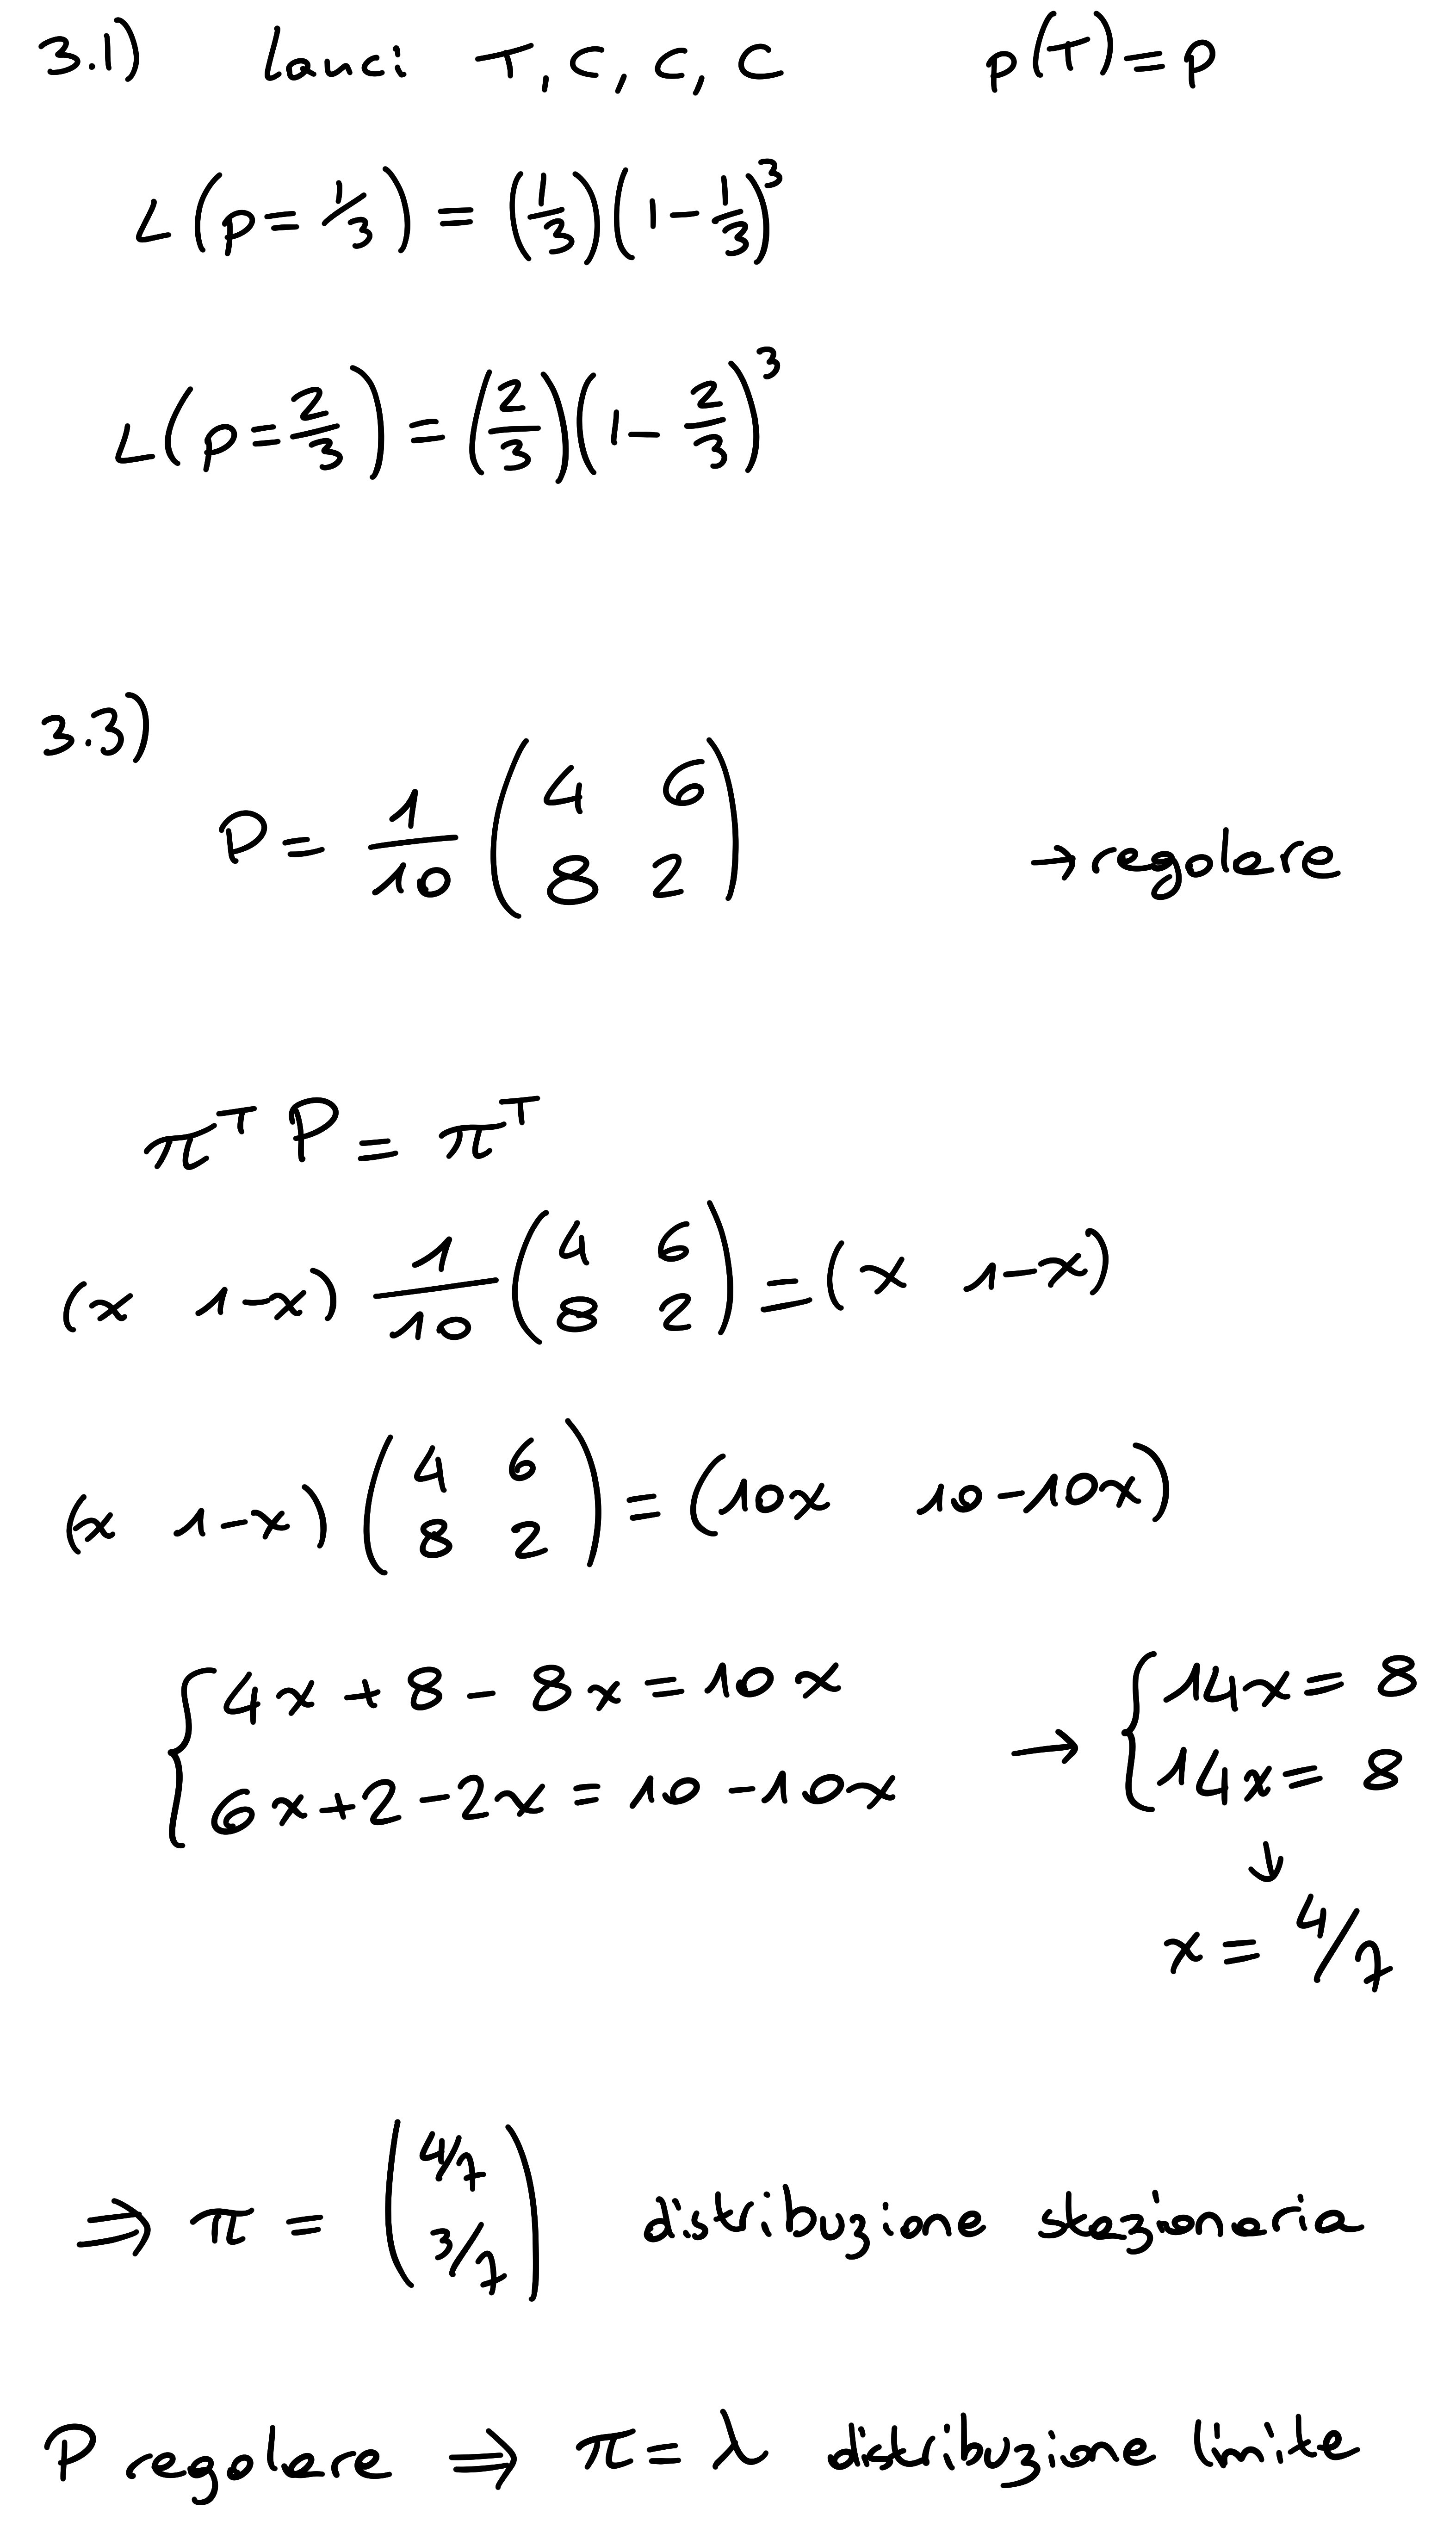 3.1) lanci T, C, C, C p(T) = p
L(p = 1/3) = (1/3)(1 - 1/3)^3
L(p = 2/3) = (2/3)(1 - 2/3)^3
3.3)
P = 1/10 (4 6; 8 2) → regolare
π^T P = π^T
(x 1-x) 1/10 (4 6; 8 2) = (x 1-x)
(x 1-x) (4 6; 8 2) = (10x 10-10x)
{ 4x + 8 - 8x = 10x → { 14x = 8
6x + 2 - 2x = 10 - 10x 14x = 8
↓
x = 4/7
⇒ π = (4/7; 3/7) distribuzione stazionaria
P regolare ⇒ π = λ distribuzione limite